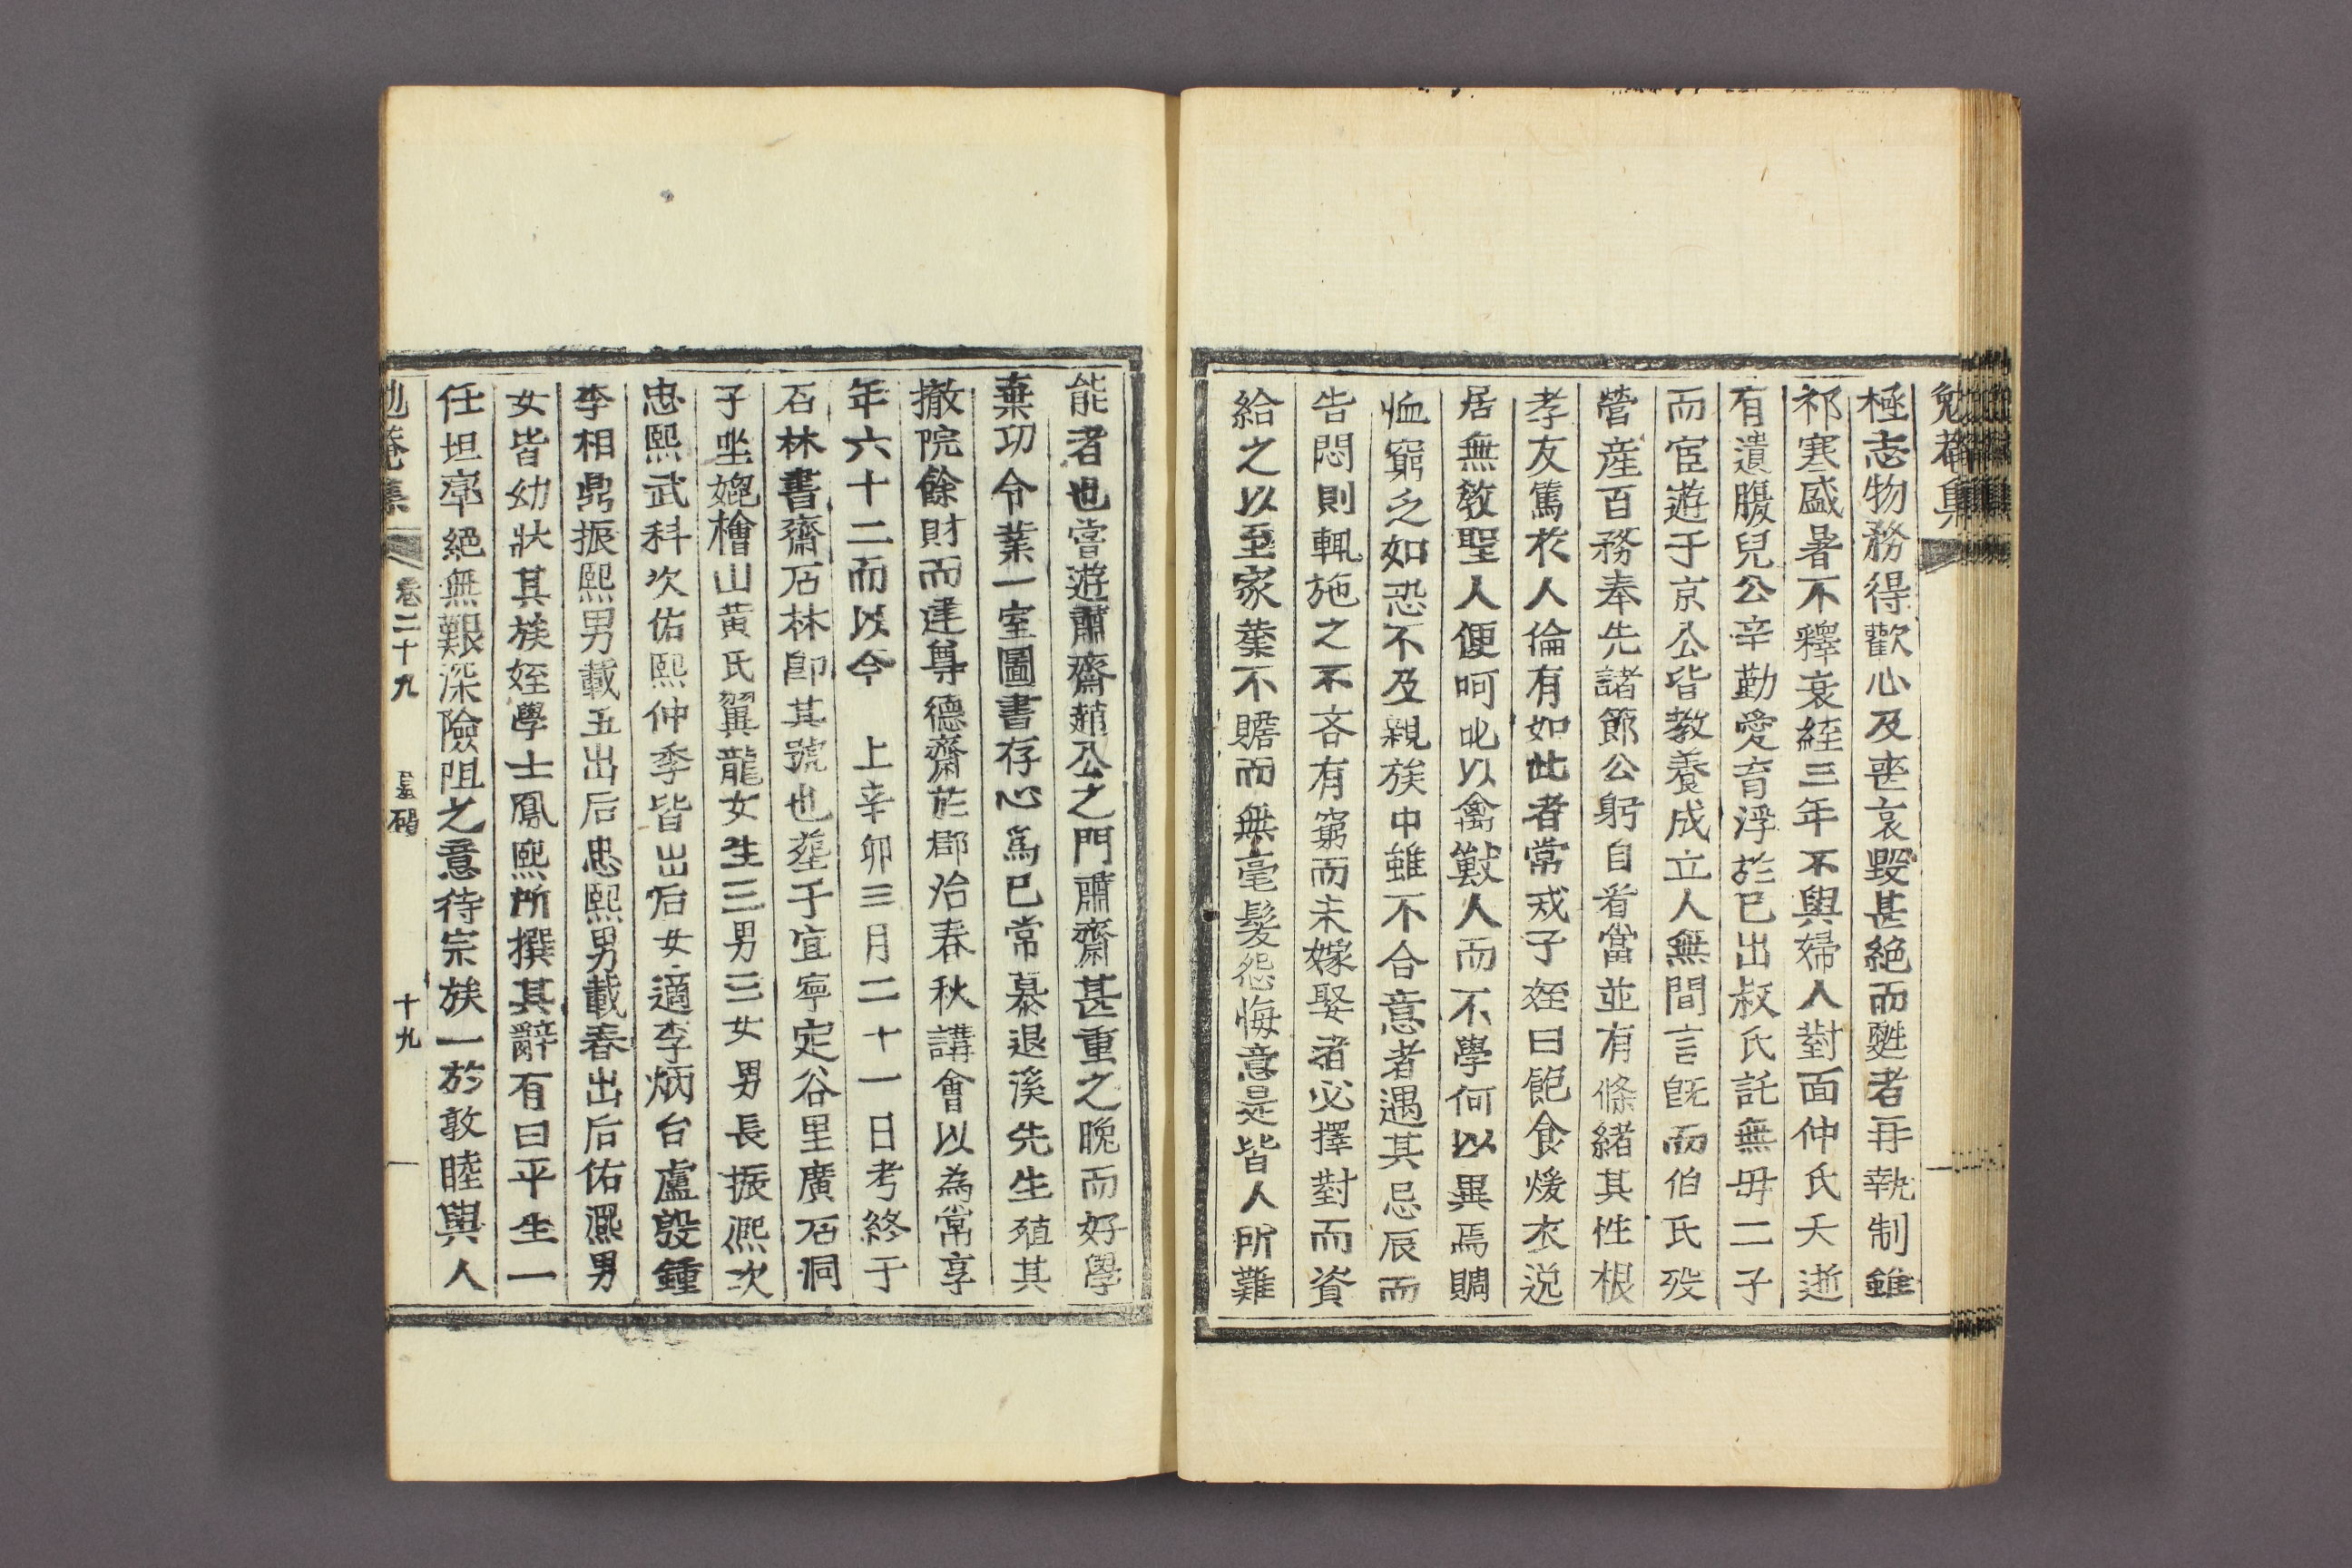 極志物務得歡心及喪哀毀甚絶而甦者再執制雖
祁寒盛暑不釋衰絰三年不與婦人對面仲氏夭逝
有遺腹兒公辛勤愛育浮於已出叔氏託無毋二子
而宦遊于京公皆敎養成立人無間言旣而伯氏歿
營産百務奉先諸節公躬自省當並有條緖其性根
孝友篤於人倫有如此者常戒子姪曰飽食煖衣逸
居無敎聖人便呵叱以禽獸人而不學何以異焉賙
恤窮乏如恐不及親族中雖不合意者遇其忌辰而
告悶則輒施之不吝有窮而未嫁娶者必擇對而資
給之以至家業不贍而無毫髮怨悔意是皆人所難
能者也嘗遊肅齋趙公之門肅齋甚重之晩而好學
棄功令業一室圖書存心爲已常慕退溪先生殖其
撤院餘財而建尊德齋於郡治春秋講會以為常享
年六十二而以今 上辛卯三月二十一日考終于
石林書齋石林卽其號也葬于宜寧定谷里廣石洞
子坐媲檜山黄氏翼龍女生三男三女男長振熙次
忠熙武科次佑熙仲季皆出后女適李炳台盧殷鍾
李相鼎振熙男載五出后忠熙男載春出后佑熙男
女皆幼狀其族姪學士鳳熙所撰其辭有曰平生一
任坦率絕無艱深險阻之意待宗族一於敦睦與人
勉菴集 卷二十九 墓碣 十九